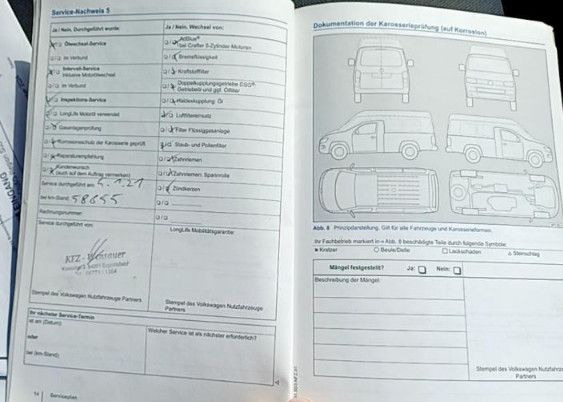 Service-Nachweis 5
Ja / Nein, Durchgeführt wurde:
Ölwechsel-Service
im Verbund
Intervall-Service
inklusive Motorölwechsel
im Verbund
Inspektions-Service
LongLife Motoröl verwendet
Gasanlagenprüfung
Korrosionsschutz der Karosserie geprüft
Reparaturempfehlung
Kundenwunsch
(auch auf dem Auftrag vermerken)
Service durchgeführt am:
bei km-Stand: 58655
Rechnungsnummer:
Service durchgeführt von:
KFZ -
Stempel des Volkswagen Nutzfahrzeuge Partners
Ja / Nein, Wechsel von:
AdBlue®
bei Crafter 5-Zylinder-Motoren
Bremsflüssigkeit
Kraftstofffilter
Doppelkupplungsgetriebe DSG®:
Getriebeöl und ggf. Ölfilter
Haldexkupplung: Öl
Luftfiltereinsatz
Filter Flüssiggasanlage
Staub- und Pollenfilter
Zahnriemen
Zahnriemen, Spannrolle
Zündkerzen
LongLife Mobilitätsgarantie:
Stempel des Volkswagen Nutzfahrzeuge
Partners
Ihr nächster Service-Termin
ist am (Datum):
oder
bei (km-Stand):
Welcher Service ist als nächster erforderlich?
Serviceplan
Dokumentation der Karosserieprüfung (auf Korrosion)
Abb. 8 Prinzipdarstellung. Gilt für alle Fahrzeuge und Karosserieformen.
Ihr Fachbetrieb markiert in » Abb. 8 beschädigte Teile durch folgende Symbole:
Kratzer
Beule/Delle
Lackschäden
Steinschlag
Mängel festgestellt?
Ja:
Nein:
Beschreibung der Mängel:
Stempel des Volkswagen Nutzfahrzeuge
Partners